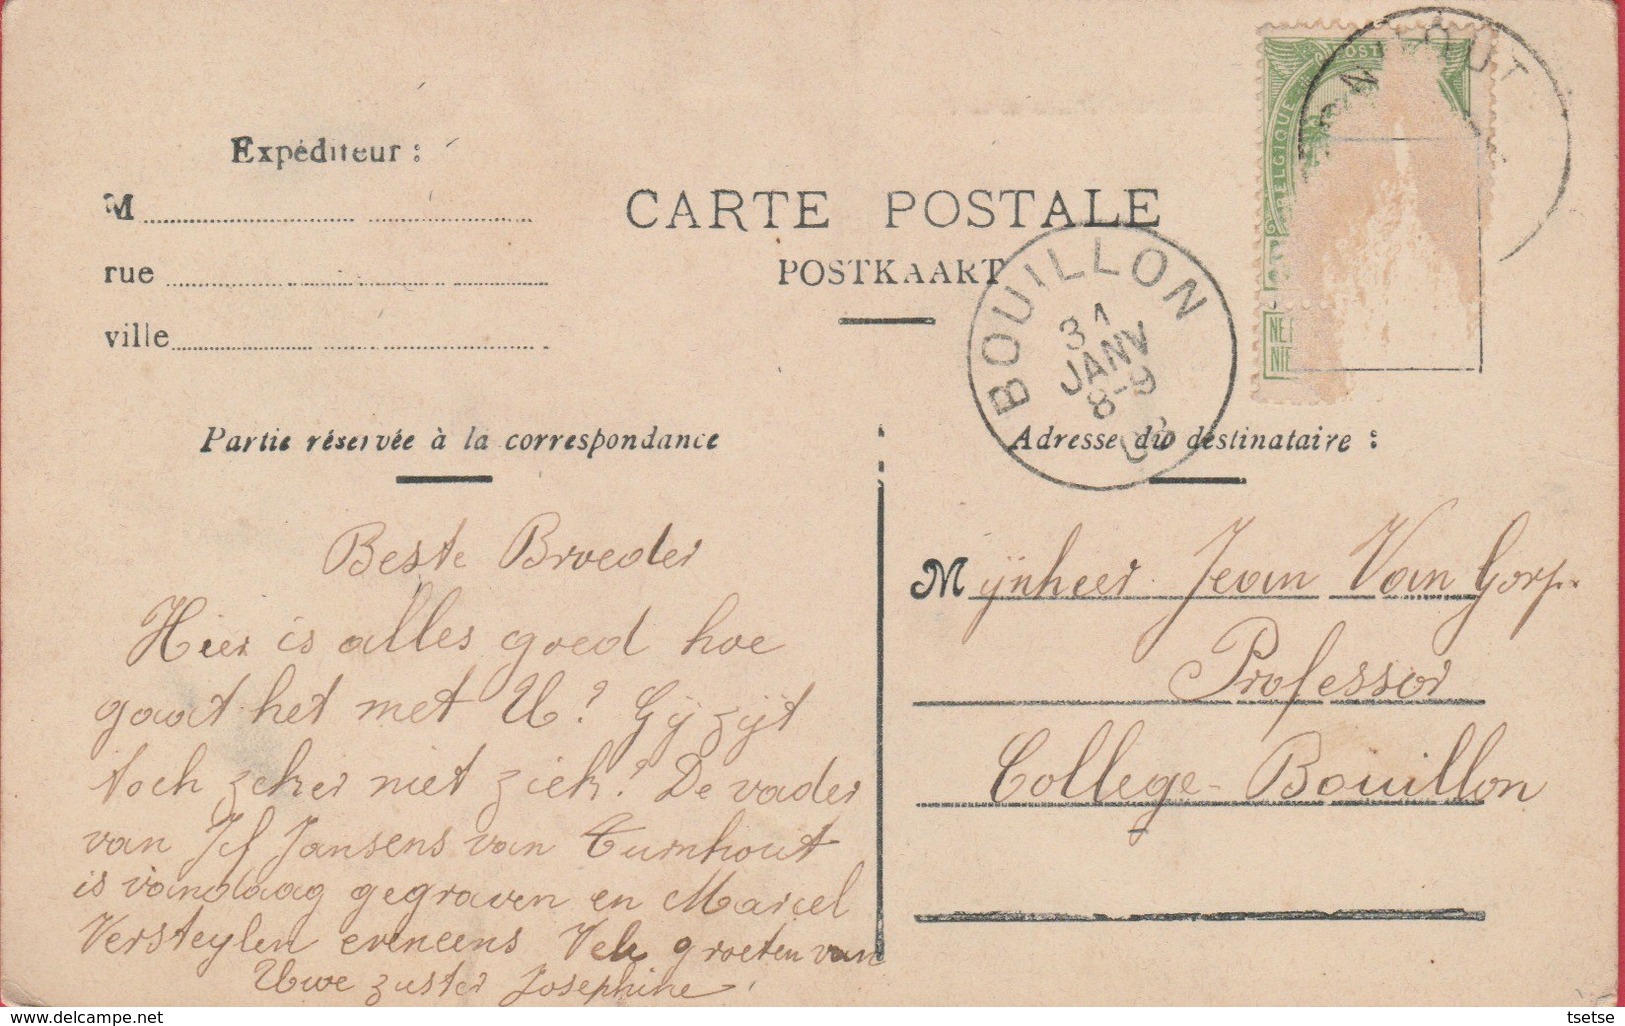 Expéditeur :
M
rue
ville
CARTE POSTALE
POSTKAART
BELGIQUE
NIE
BOUILLON
31
JANV
8-9
08
Partie réservée à la correspondance
Adresse du destinataire :
Beste Broeder
Hier is alles goed hoe
gaat het met U? Gij zijt
toch zeker niet ziek? De vader
van Jef Jansens van Turnhout
is vandaag gegraven en Marcel
Versteylen eveneens Vele groeten van
Uwe zuster Josephine
Mijnheer Jean Van Gorp.
Professor
College - Bouillon
delcampe.net
tsetse